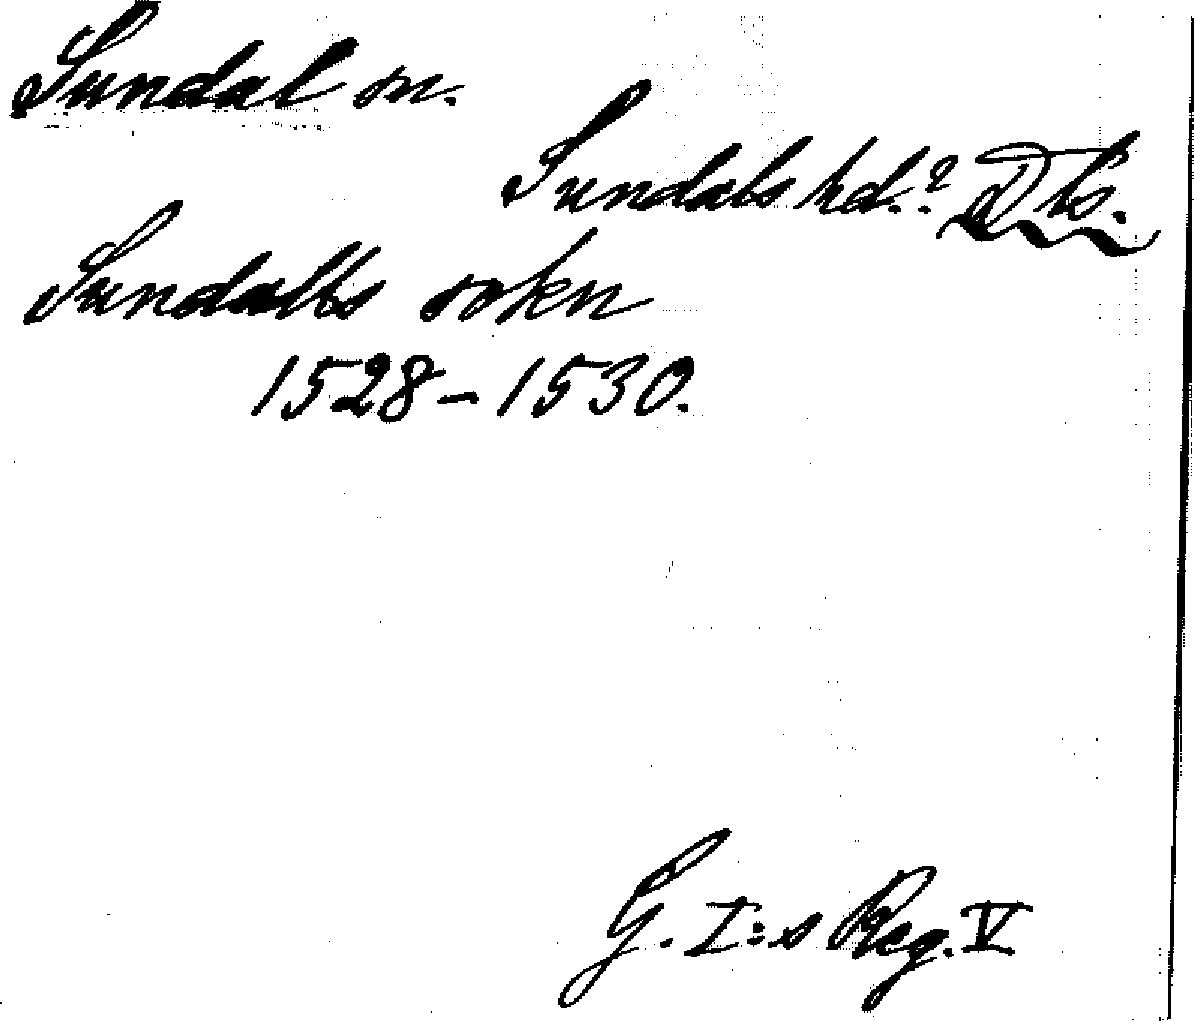 Sundal sn.
Sundals hd.? Dls.
Sundalls sokn
1528-1530.
G. I:s Reg. V